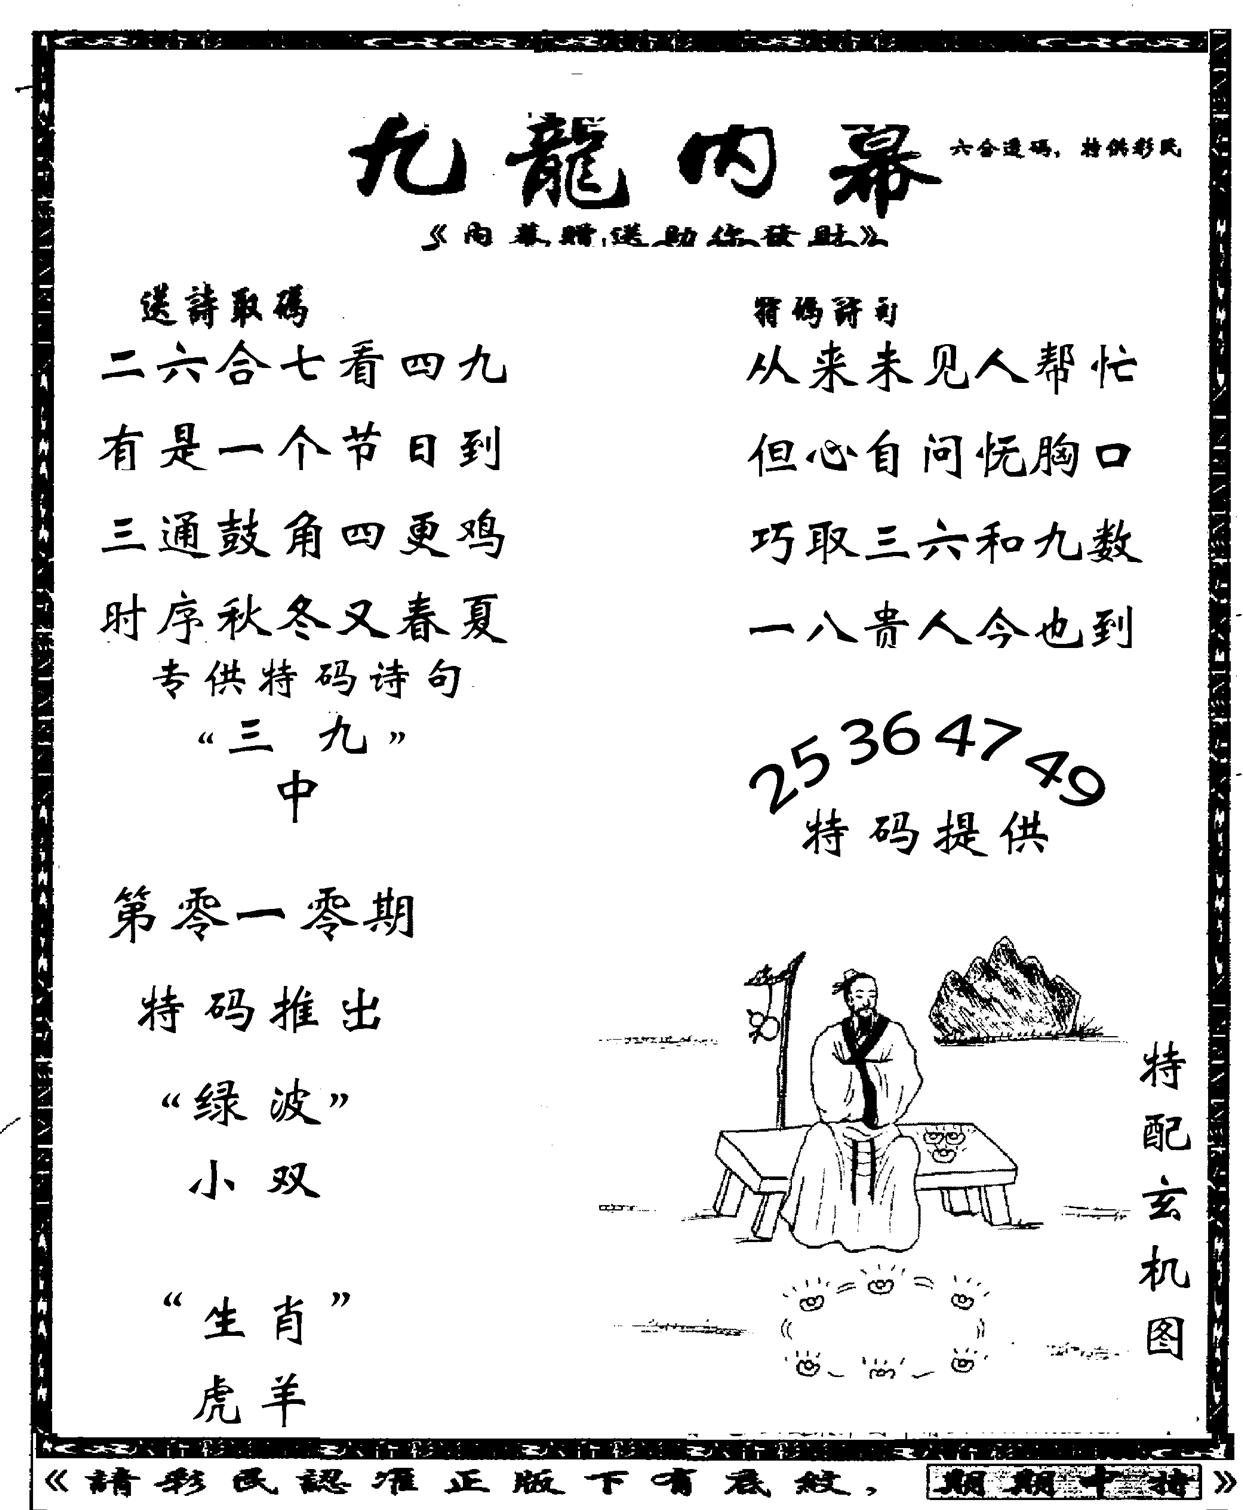 九龍内幕
六合透码，特供彩民
《内幕贈送助你發財》
送詩取碼
二六合七看四九
有是一个节日到
三通鼓角四更鸡
时序秋冬又春夏
专供特码诗句
“三九”
中
第零一零期
特码推出
“绿波”
小双
“生肖”
虎羊
特碼詩句
从来未见人帮忙
但心自问怃胸口
巧取三六和九数
一八贵人今也到
25 36 47 49
特码提供
特配玄机图
《請彩民認准正版下有底紋，期期中特》